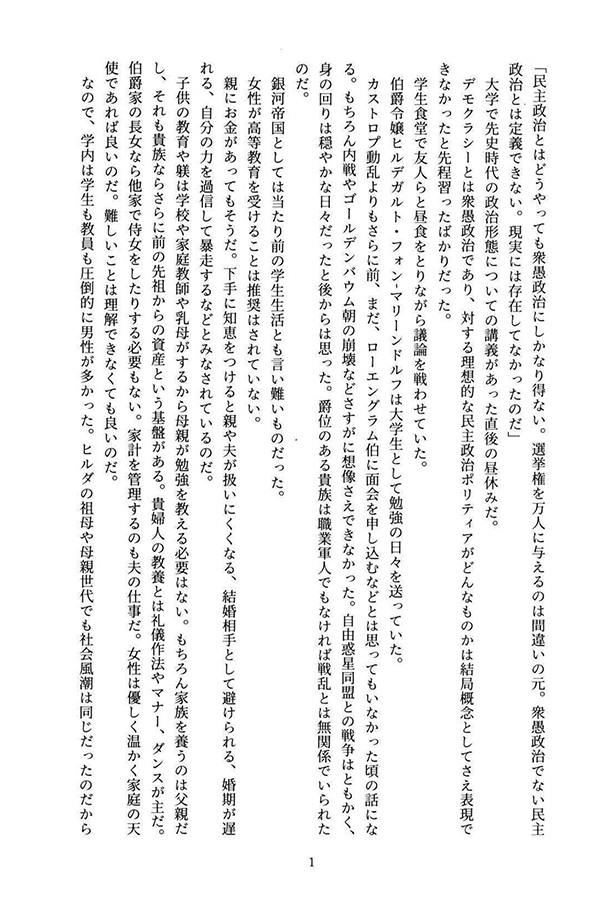 「民主政治とはどうやっても衆愚政治にしかなり得ない。選挙権を万人に与えるのは間違いの元。衆愚政治でない民主
政治とは定義できない。現実には存在してなかったのだ」
大学で先史時代の政治形態についての講義があった直後の昼休みだ。
デモクラシーとは衆愚政治であり、対する理想的な民主政治ポリティアがどんなものかは結局概念としてさえ表現で
きなかったと先程習ったばかりだった。
学生食堂で友人らと昼食をとりながら議論を戦わせていた。
伯爵令嬢ヒルデガルト・フォン-マリーンドルフは大学生として勉強の日々を送っていた。
カストロプ動乱よりもさらに前、まだ、ローエングラム伯に面会を申し込むなどとは思ってもいなかった頃の話にな
る。もちろん内戦やゴールデンバウム朝の崩壊などさすがに想像さえできなかった。自由惑星同盟との戦争はともかく、
身の回りは穏やかな日々だったと後からは思った。爵位のある貴族は職業軍人でもなければ戦乱とは無関係でいられた
のだ。
銀河帝国としては当たり前の学生生活とも言い難いものだった。
女性が高等教育を受けることは推奨はされていない。
親にお金があってもそうだ。下手に知恵をつけると親や夫が扱いにくくなる、結婚相手として避けられる、婚期が遅
れる、自分の力を過信して暴走するなどとみなされているのだ。
子供の教育や躾は学校や家庭教師や乳母がするから母親が勉強を教える必要はない。もちろん家族を養うのは父親だ
し、それも貴族ならさらに前の先祖からの資産という基盤がある。貴婦人の教養とは礼儀作法やマナー、ダンスが主だ。
伯爵家の長女なら他家で侍女をしたりする必要もない。家計を管理するのも夫の仕事だ。女性は優しく温かく家庭の天
使であれば良いのだ。難しいことは理解できなくても良いのだ。
なので、学内は学生も教員も圧倒的に男性が多かった。ヒルダの祖母や母親世代でも社会風潮は同じだったのだから
1